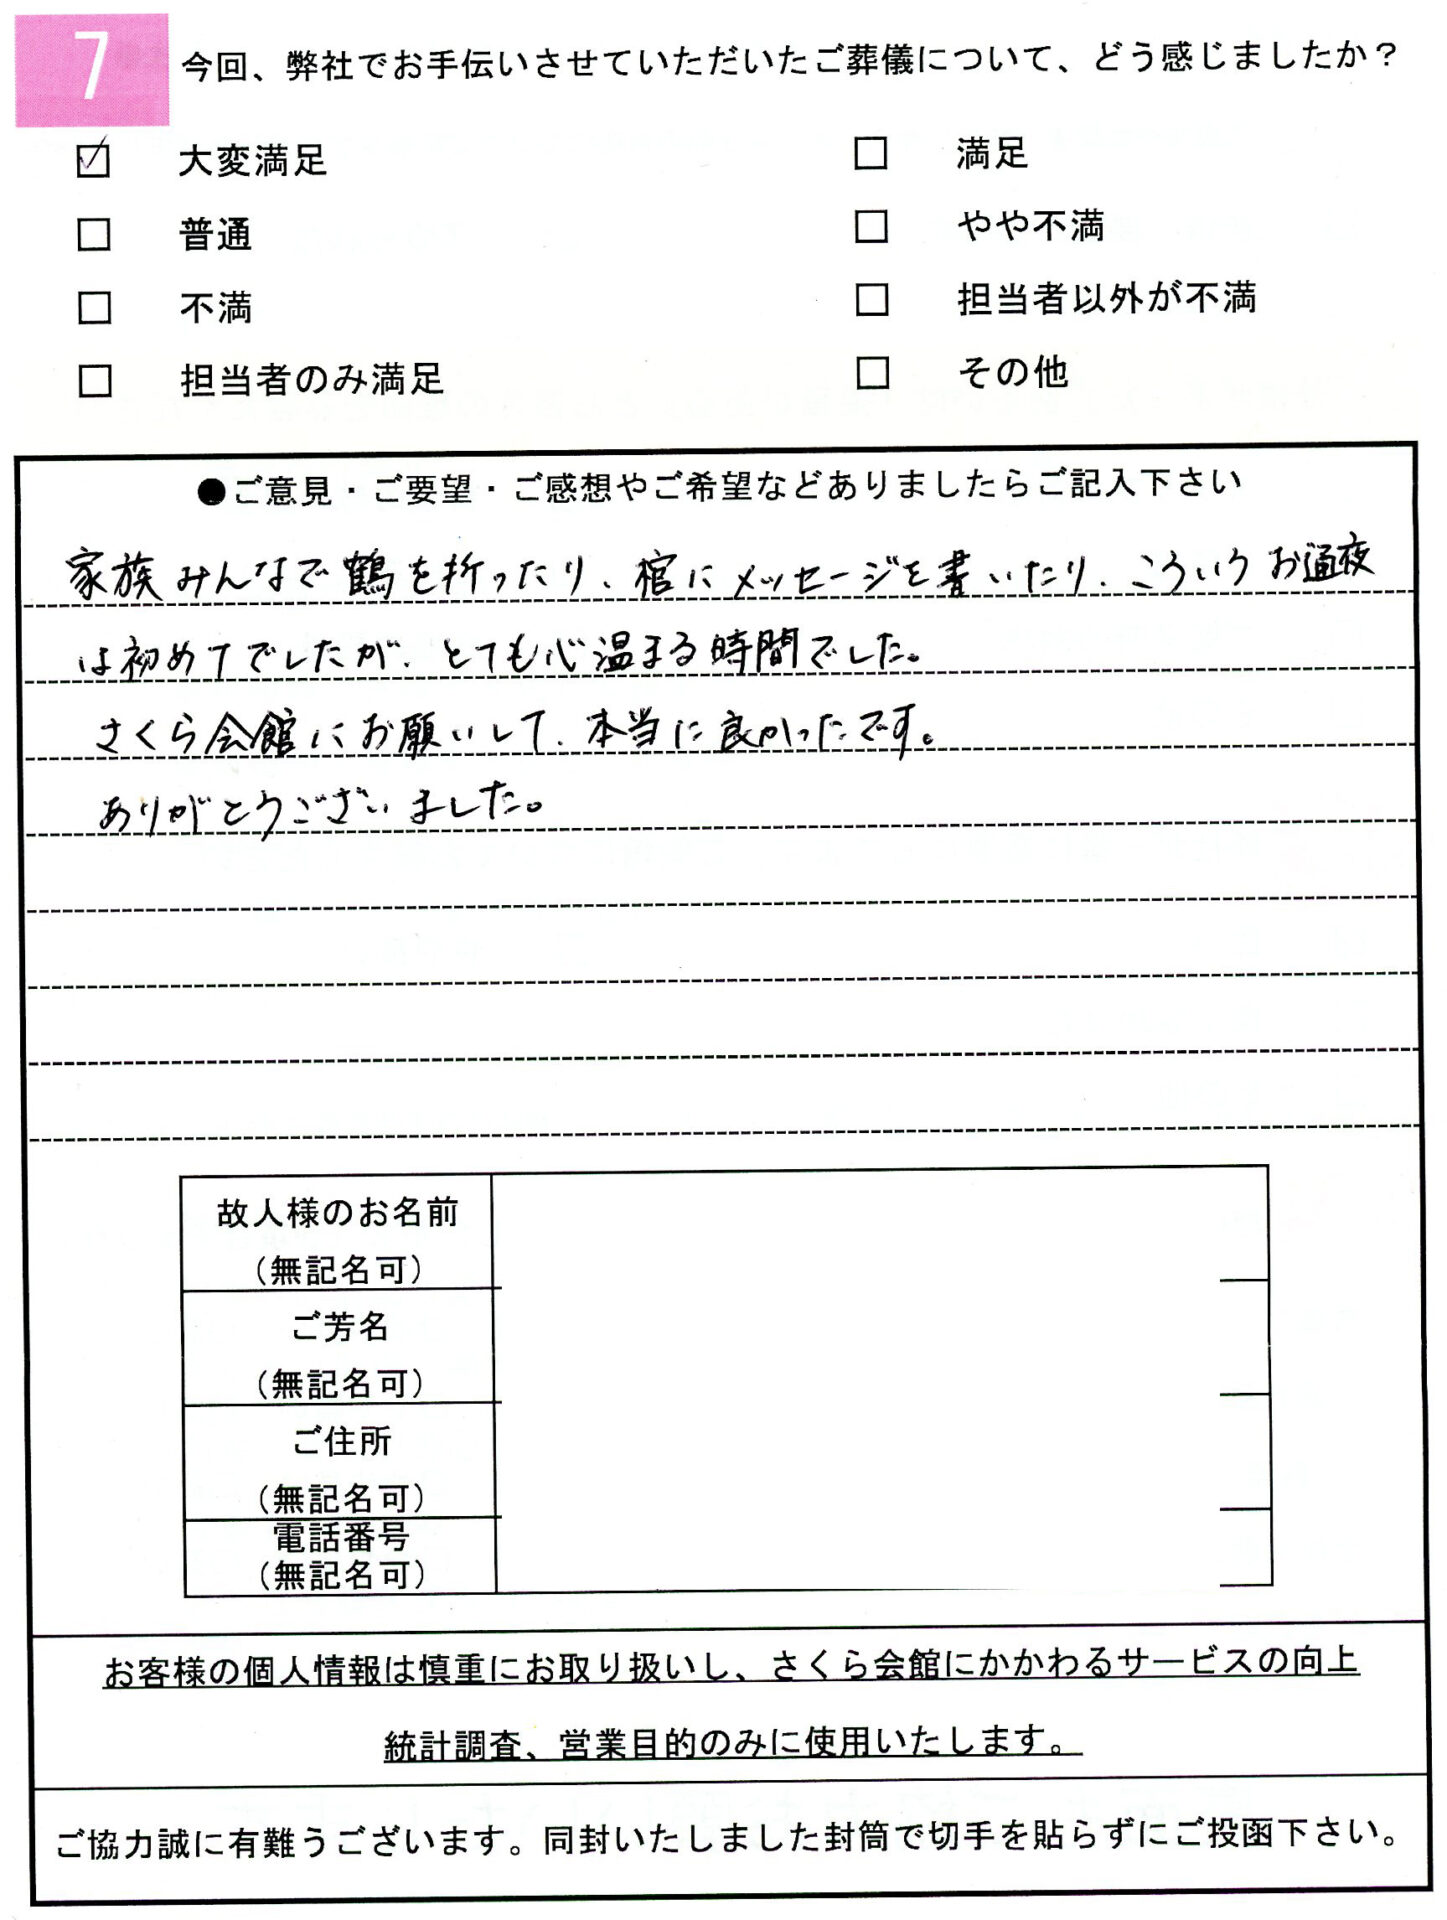 7 今回、弊社でお手伝いさせていただいたご葬儀について、どう感じましたか？
☑ 大変満足 □ 満足
□ 普通 □ やや不満
□ 不満 □ 担当者以外が不満
□ 担当者のみ満足 □ その他
●ご意見・ご要望・ご感想やご希望などありましたらご記入下さい
家族みんなで鶴を折ったり、棺にメッセージを書いたり、こういうお通夜
は初めてでしたが、とても心温まる時間でした。
さくら会館にお願いして、本当に良かったです。
ありがとうございました。
故人様のお名前
（無記名可）
ご芳名
（無記名可）
ご住所
（無記名可）
電話番号
（無記名可）
お客様の個人情報は慎重にお取り扱いし、さくら会館にかかわるサービスの向上
統計調査、営業目的のみに使用いたします。
ご協力誠に有難うございます。同封いたしました封筒で切手を貼らずにご投函下さい。